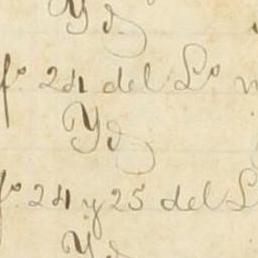 Yd
fº 24 del Lº
Yd
fº 24 y 25 del L
Yd